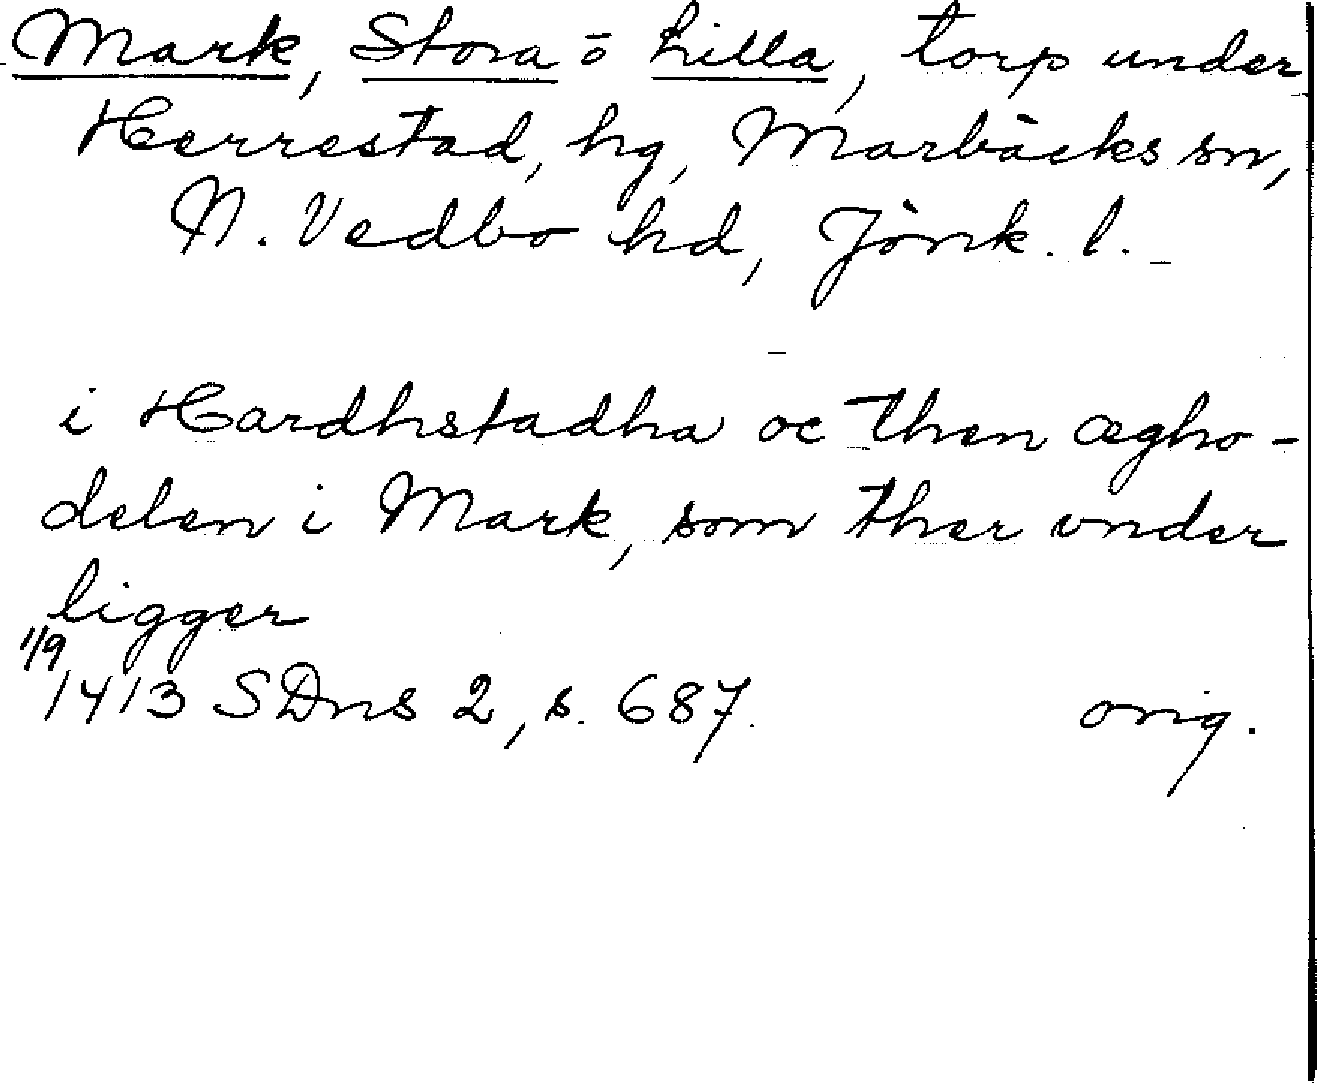 Mark, Stora o Lilla, torp under
Herrestad, hg, Marbäcks sn,
N. Vedbo hd, Jönk. l.
i Hardhstadha oc then ægho-
delen i Mark, som ther vnder
ligger
1/9
1413 SDns 2, s. 687. orig.